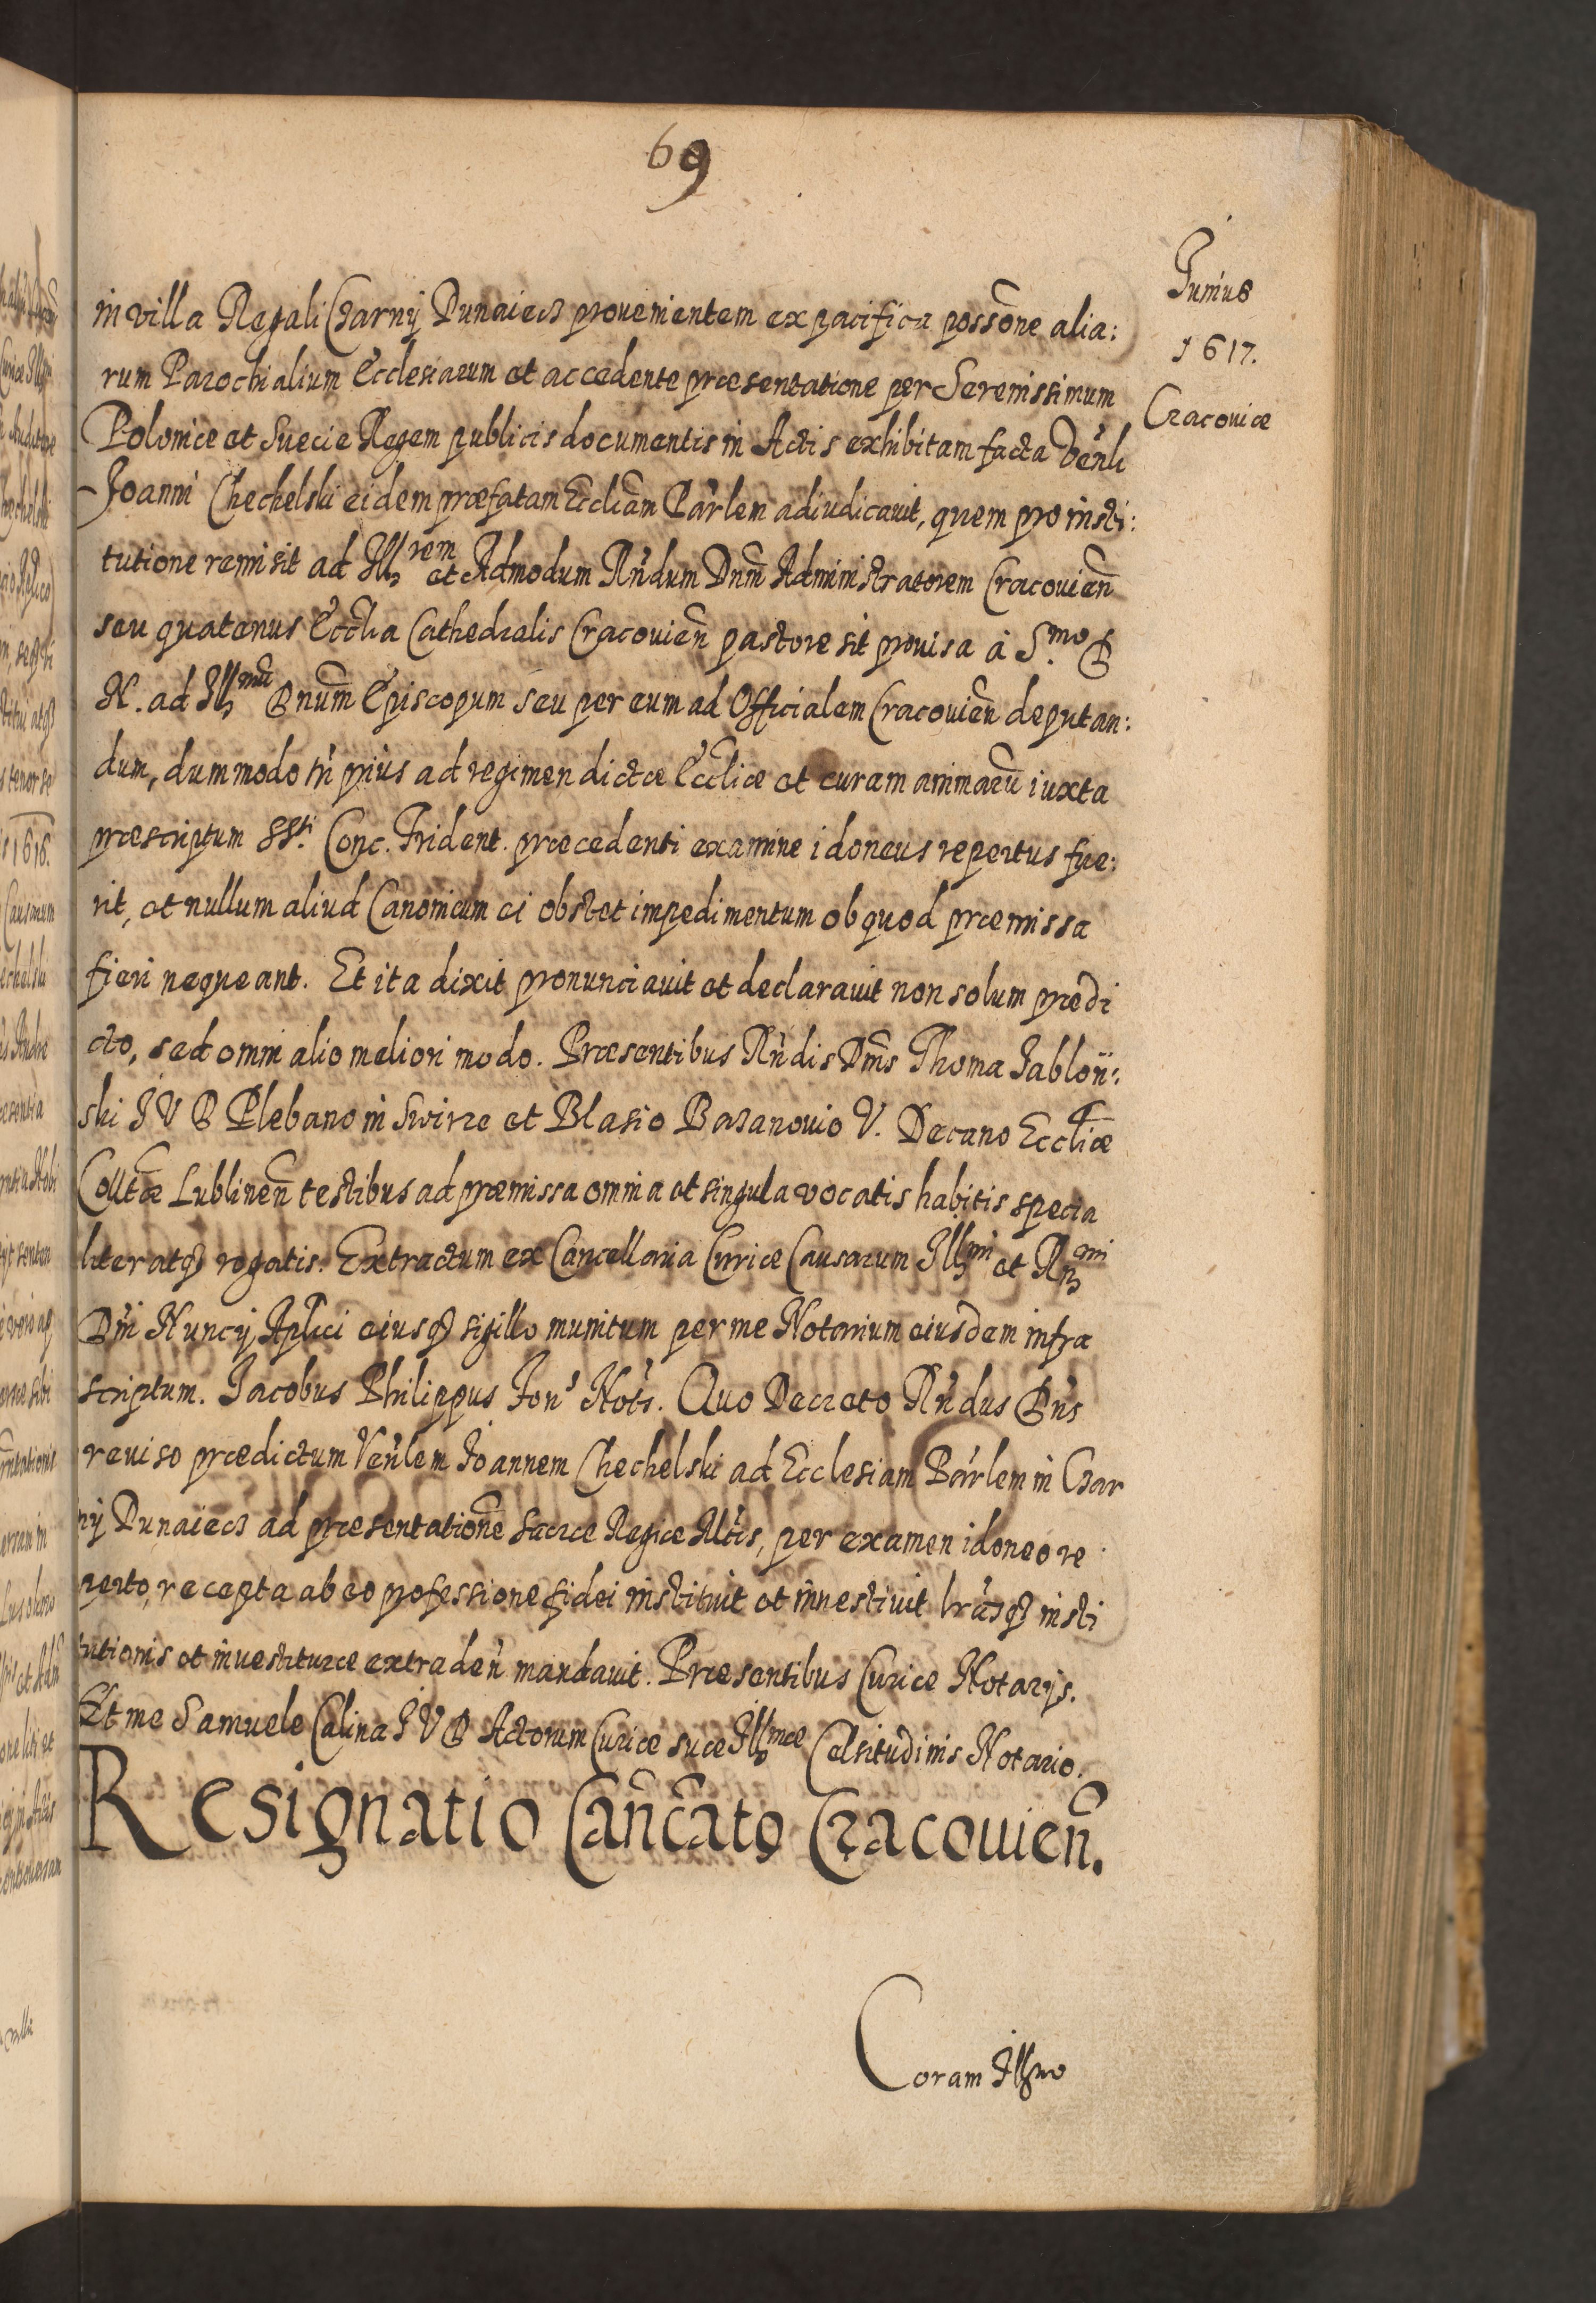 69
Junius
1617.
Cracoviæ
in villa Regali Czarny Dunaiecz provenientem ex pacifica possõne alia:
rum Parochialium Ecclesiarum et accedente præsentatione per Serenissimum
Poloniæ et Sueciæ Regem publicis documentis in Actis exhibitam facta Venli
Joanni Chechelski eidem præfatam Eccliam Parlem adiudicavit, quem pro insti:
tutione remisit ad Illrem et Admodum Rndum Dnm Administratorem Cracovien̄
seu quatenus Ecclia Cathedralis Cracovien̄ pastore sit provisa à S.mo D
N. ad Illmū Dnum Episcopum seu per eum ad Officialem Cracovien̄ deputan:
dum, dummodo tn̄ prius ad regimen dictæ Eccliæ et curam animarū iuxta
præscriptum SSti. Conc. Trident. præcedenti examine idoneus repertus fue:
rit, et nullum aliud Canonicum ei obstet impedimentum ob quod præmissa
fieri nequeant. Et ita dixit pronunciavit et declaravit non solum prædi
cto, sed omni alio meliori modo. Præsentibus Rn̄dis Dnis Thoma Jablon̄:
ski J V D Plebano in Swirze et Blasio Bazanovio V. Decano Eccliæ
Colltæ Lublinen̄ testibus ad præmissa omnia et singula vocatis habitis specia
liter atq rogatis. Extractum ex Cancellaria Curiæ Causarum Illmi et Rmi
Dn̄i Nuncij Aplici eiusq sigillo munitum per me Notarium eiusdem infra
scriptum. Jacobus Philippus Notrs. Quo Decreto Rn̄dus Dn̄s
reviso prædictum Venlem Joannem Chechelski ad Ecclesiam Parlem in Czar
ny Dunaiecz ad præsentationē Sacræ Regiæ Mtis, per examen idoneo re
perto, recepta ab eo professione fidei instituit et investivit lrasq insti
tutionis et investituræ extraden̄ mandavit. Præsentibus Curiæ Notarijs.
Et me Samuele Calina J V D Actorum Curiæ suæ Illmæ Celsitudinis Notario.
Resignatio Can̄catq Cracovien̄.
Coram Illmo